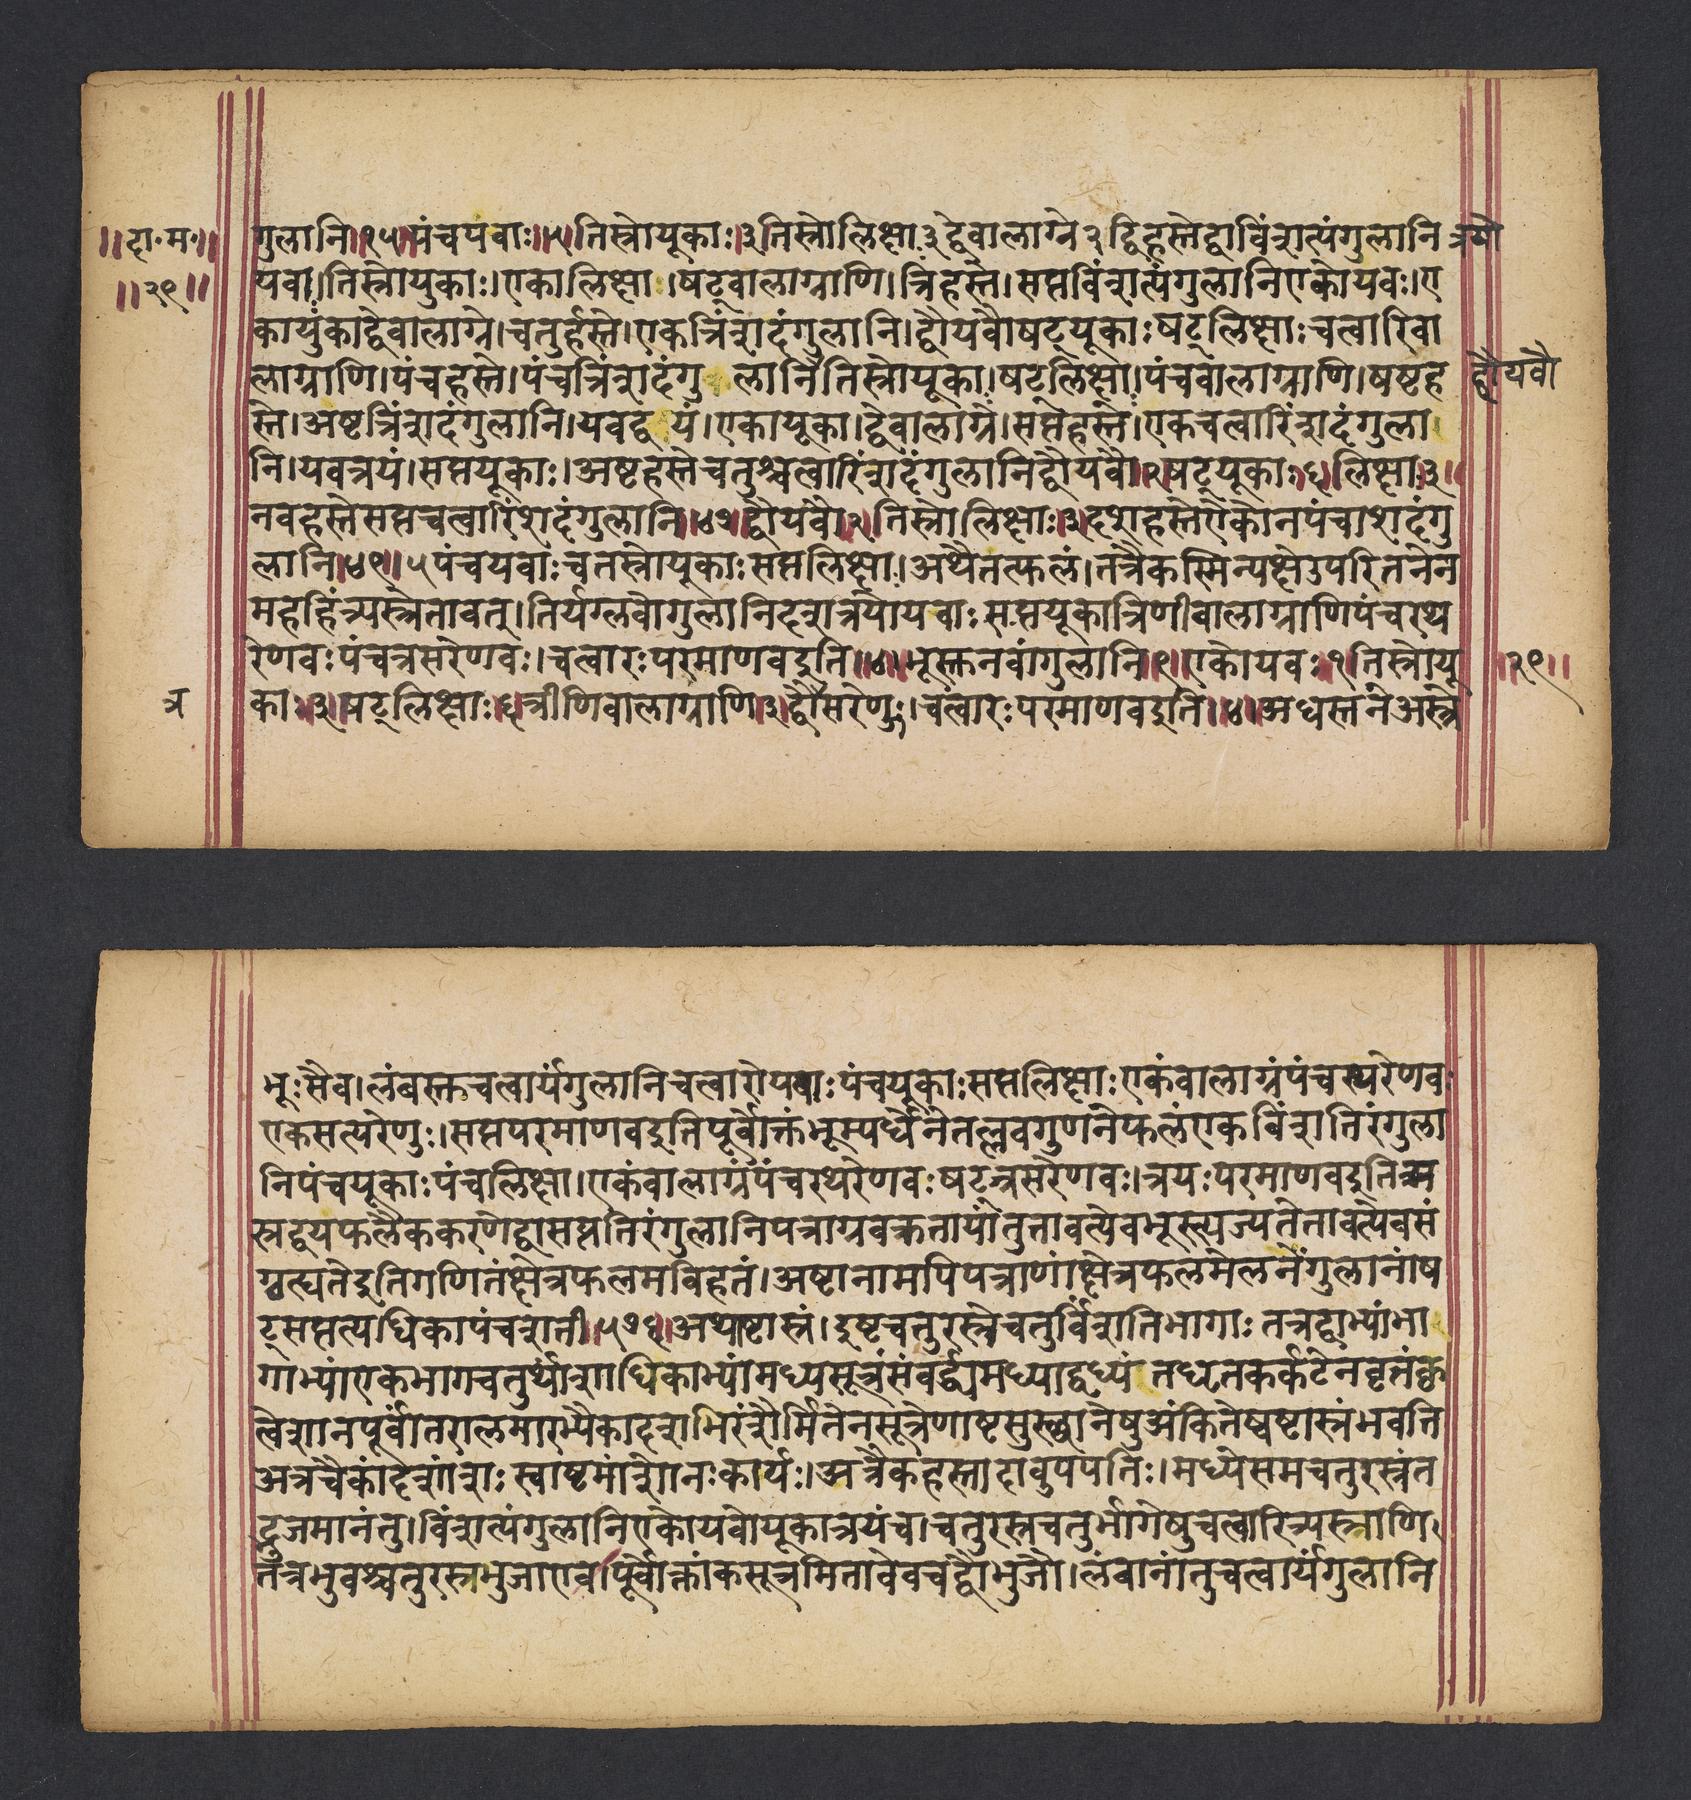 ॥दा॰म॰॥
॥२९॥
गुलानि॥१५॥पंचयवाः॥५॥तिस्त्रोयूकाः३तिस्त्रोलिक्षाः३द्वेवालाग्रे२द्विहस्तेद्वाविंशत्यंगुलानि त्रयो
यवा।तिस्त्रोयुकाः।एकालिक्षाः।षट्वालाग्राणि।त्रिहस्ते।सप्तविंशत्यंगुलानिएकोयवः।ए
कायुकाद्वेवालाग्रे।चतुर्हस्ते।एकत्रिंशदंगुलानि।द्वौयवौषट्यूकाःषट्लिक्षाःचत्वारिवा
लाग्राणि।पंचहस्ते।पंचत्रिंशदंगु लानितिस्त्रोयूकाः।षट्लिक्षाः।पंचवालाग्राणि।षष्टह द्वौयवौ
स्ते।अष्टत्रिंशदंगुलानि।यवद्व यं।एकायूका।द्वेवालाग्रे।सप्तहस्ते।एकचत्वारिंशदंगुला
नि।यवत्रयं।सप्तयूकाः।अष्टहस्तेचतुश्चत्वारिंशदंगुलानिद्वौयवौ।२।षट्यूकाः।६।लिक्षाः३॥
नवहस्तेसप्तचत्वारिंशदंगुलानि॥४७॥द्वौयवौ२।तिस्त्रोलिक्षाः।३।दशहस्तेऐकोनपंचाशदंगु
लानि॥४९॥५पंचयवाःचतस्त्रोयूकाःसप्तलिक्षाः।अथैतत्फलं।तत्रैकस्मिन्पक्षेउपरितनेन
महहिंत्र्यस्त्रेतावत्।तिर्यग्लवोगुलानिदशत्रयोयवाःसप्तयूकात्रिणीवालाग्राणिपंचरथे
रेणवःपंचत्रसरेणवः।चत्वारःपरमाणवइति॥४॥भूस्तनवांगुलानि।९।एकोयवः१तिस्त्रोयू ॥२९॥
त्र काः।३।षट्लिक्षाः।६।त्रीणिवालाग्राणि३।द्वौसरेणुः।चत्वारःपरमाणवइति।४।अधस्तनेअस्त्रे
भूःसैव।लंबस्तचत्वार्यंगुलानिचत्वारोयवाःपंचयुकाःसप्तलिक्षाःएकंवालाग्रंपंचस्थरेणवः
एकसत्परेणुः।सप्तपरमाणवइतिपूर्वोक्तंभूम्यर्धेनैतल्लवगुणनेफलंएकविंशतिरंगुला
निपंचयूकाःपंचलिक्षा।एकंवालाग्रंपंचरथरेणवःषट्त्रसरेणवः।त्रयःपरमाणवइतित्र्य
स्रद्वयफलैककरणेद्वासप्ततिरंगुलानिपत्राग्रवक्रतायांतुतावत्येवभूस्त्यज्यतेतावत्यैवसं
गृह्यतेइतिगणितंक्षेत्रफलमविहतं।अष्टानामपिपत्राणांक्षेत्रफलमेलनेंगुलानांष
ट्सप्तत्यधिकापंचशती।५७६।अथाष्टास्त्रं।इष्टचतुरस्त्रेचतुर्विंशतिभागाःतत्रद्वाभ्यांभा
गाभ्यांएकभागचतुर्थांशाधिकाभ्यांमध्यसूत्रंसंवर्द्ध्यमध्याद्वध्यं तधृतकर्कटेनवृतंकृ
त्वेशानपूर्वांतरालमारभ्यैकादशभिरंशैर्मितेनसूत्रेणाष्टसुस्थानेषुअंकितेष्वष्टास्त्रंभवति
अत्रचैकांदेशांशःस्वाष्टमांशोनःकार्यः।अत्रैकहस्तादावुपपतिः।मध्येसमचतुरस्त्रंत
द्भुजमानंतु।विंशत्यंगुलानिएकोयवोयूकात्रयंच।चतुरस्त्रचतुर्भागेषुचत्वारित्र्यस्त्राणि
तत्रभुवश्चतुरस्त्रभुजाएव।पूर्वोक्तांकसूत्रमितावेवचद्वौभुजौ।लंबानांतुचत्वार्यंगुलानि